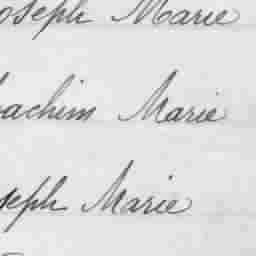 oseph Marie
oachim Marie
seph Marie